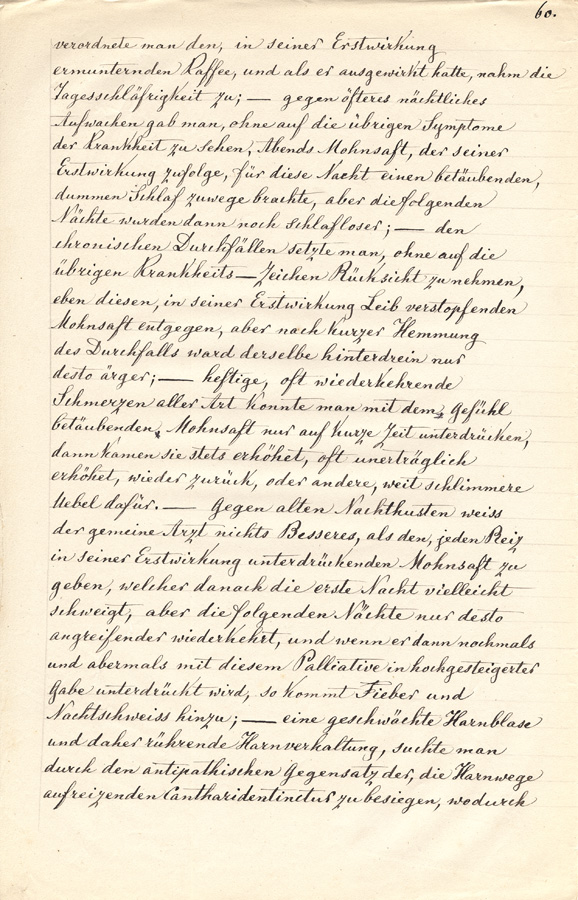 60.
verordnete man den, in seiner Erstwirkung
ermunternden Kaffee, und als er ausgewirkt hatte, nahm die
Tagesschläfrigkeit zu; — gegen öfteres nächtliches
Aufwachen gab man, ohne auf die übrigen Symptome
der Krankheit zu sehen, Abends Mohnsaft, der seiner
Erstwirkung zufolge, für diese Nacht einen betäubenden,
dummen Schlaf zuwege brachte, aber die folgenden
Nächte wurden dann noch schlafloser; — den
chronischen Durchfällen setzte man, ohne auf die
übrigen Krankheits-Zeichen Rücksicht zu nehmen,
eben diesen, in seiner Erstwirkung Leib verstopfenden
Mohnsaft entgegen, aber nach kurzer Hemmung
des Durchfalls ward derselbe hinterdrein nur
desto ärger; — heftige, oft wiederkehrende
Schmerzen aller Art konnte man mit dem, Gefühl
betäubenden, Mohnsaft nur auf kurze Zeit unterdrücken,
dann kamen sie stets erhöhet, oft unerträglich
erhöhet, wieder zurück, oder andere, weit schlimmere
Uebel dafür. — Gegen alten Nachthusten weiss
der gemeine Arzt nichts Besseres, als den, jeden Reiz
in seiner Erstwirkung unterdrückenden Mohnsaft zu
geben, welcher danach die erste Nacht vielleicht
schweigt, aber die folgenden Nächte nur desto
angreifender wiederkehrt, und wenn er dann nochmals
und abermals mit diesem Palliative in hochgesteigerter
Gabe unterdrückt wird, so kommt Fieber und
Nachtschweiss hinzu; — eine geschwächte Harnblase
und daher rührende Harnverhaltung, suchte man
durch den antipathischen Gegensatz der, die Harnwege
aufreizenden Cantharidentinctur zu besiegen, wodurch